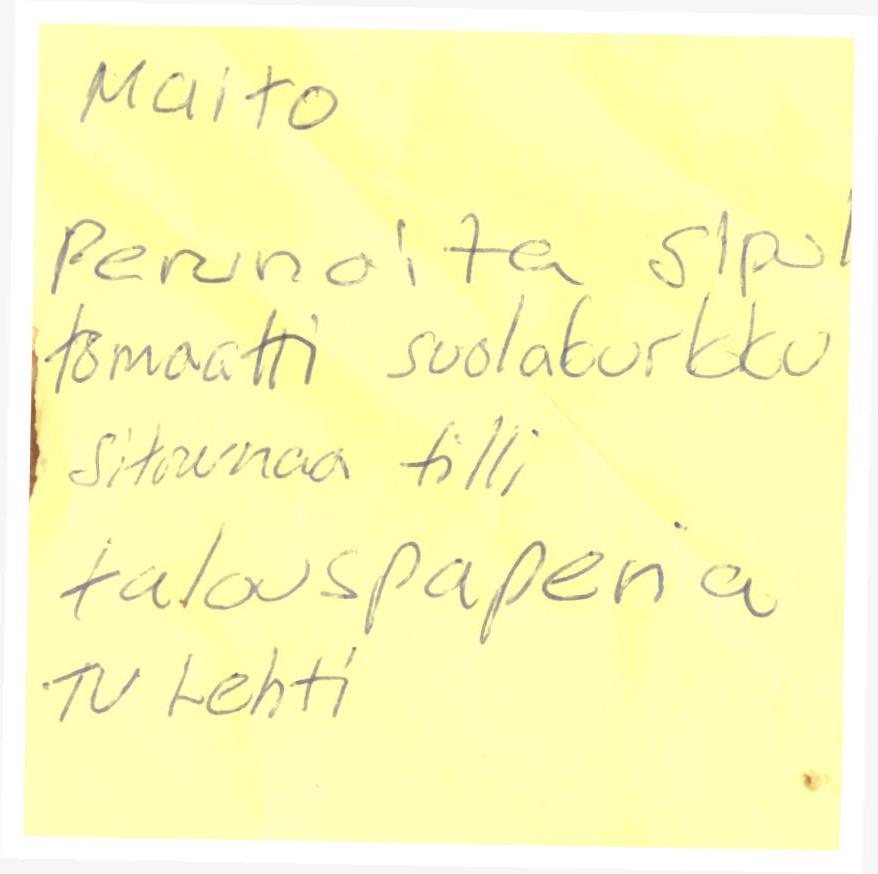 Maito
Perunoita sipul
tomaatti suolakurkku
sitruunaa tilli
talouspaperia
TV Lehti